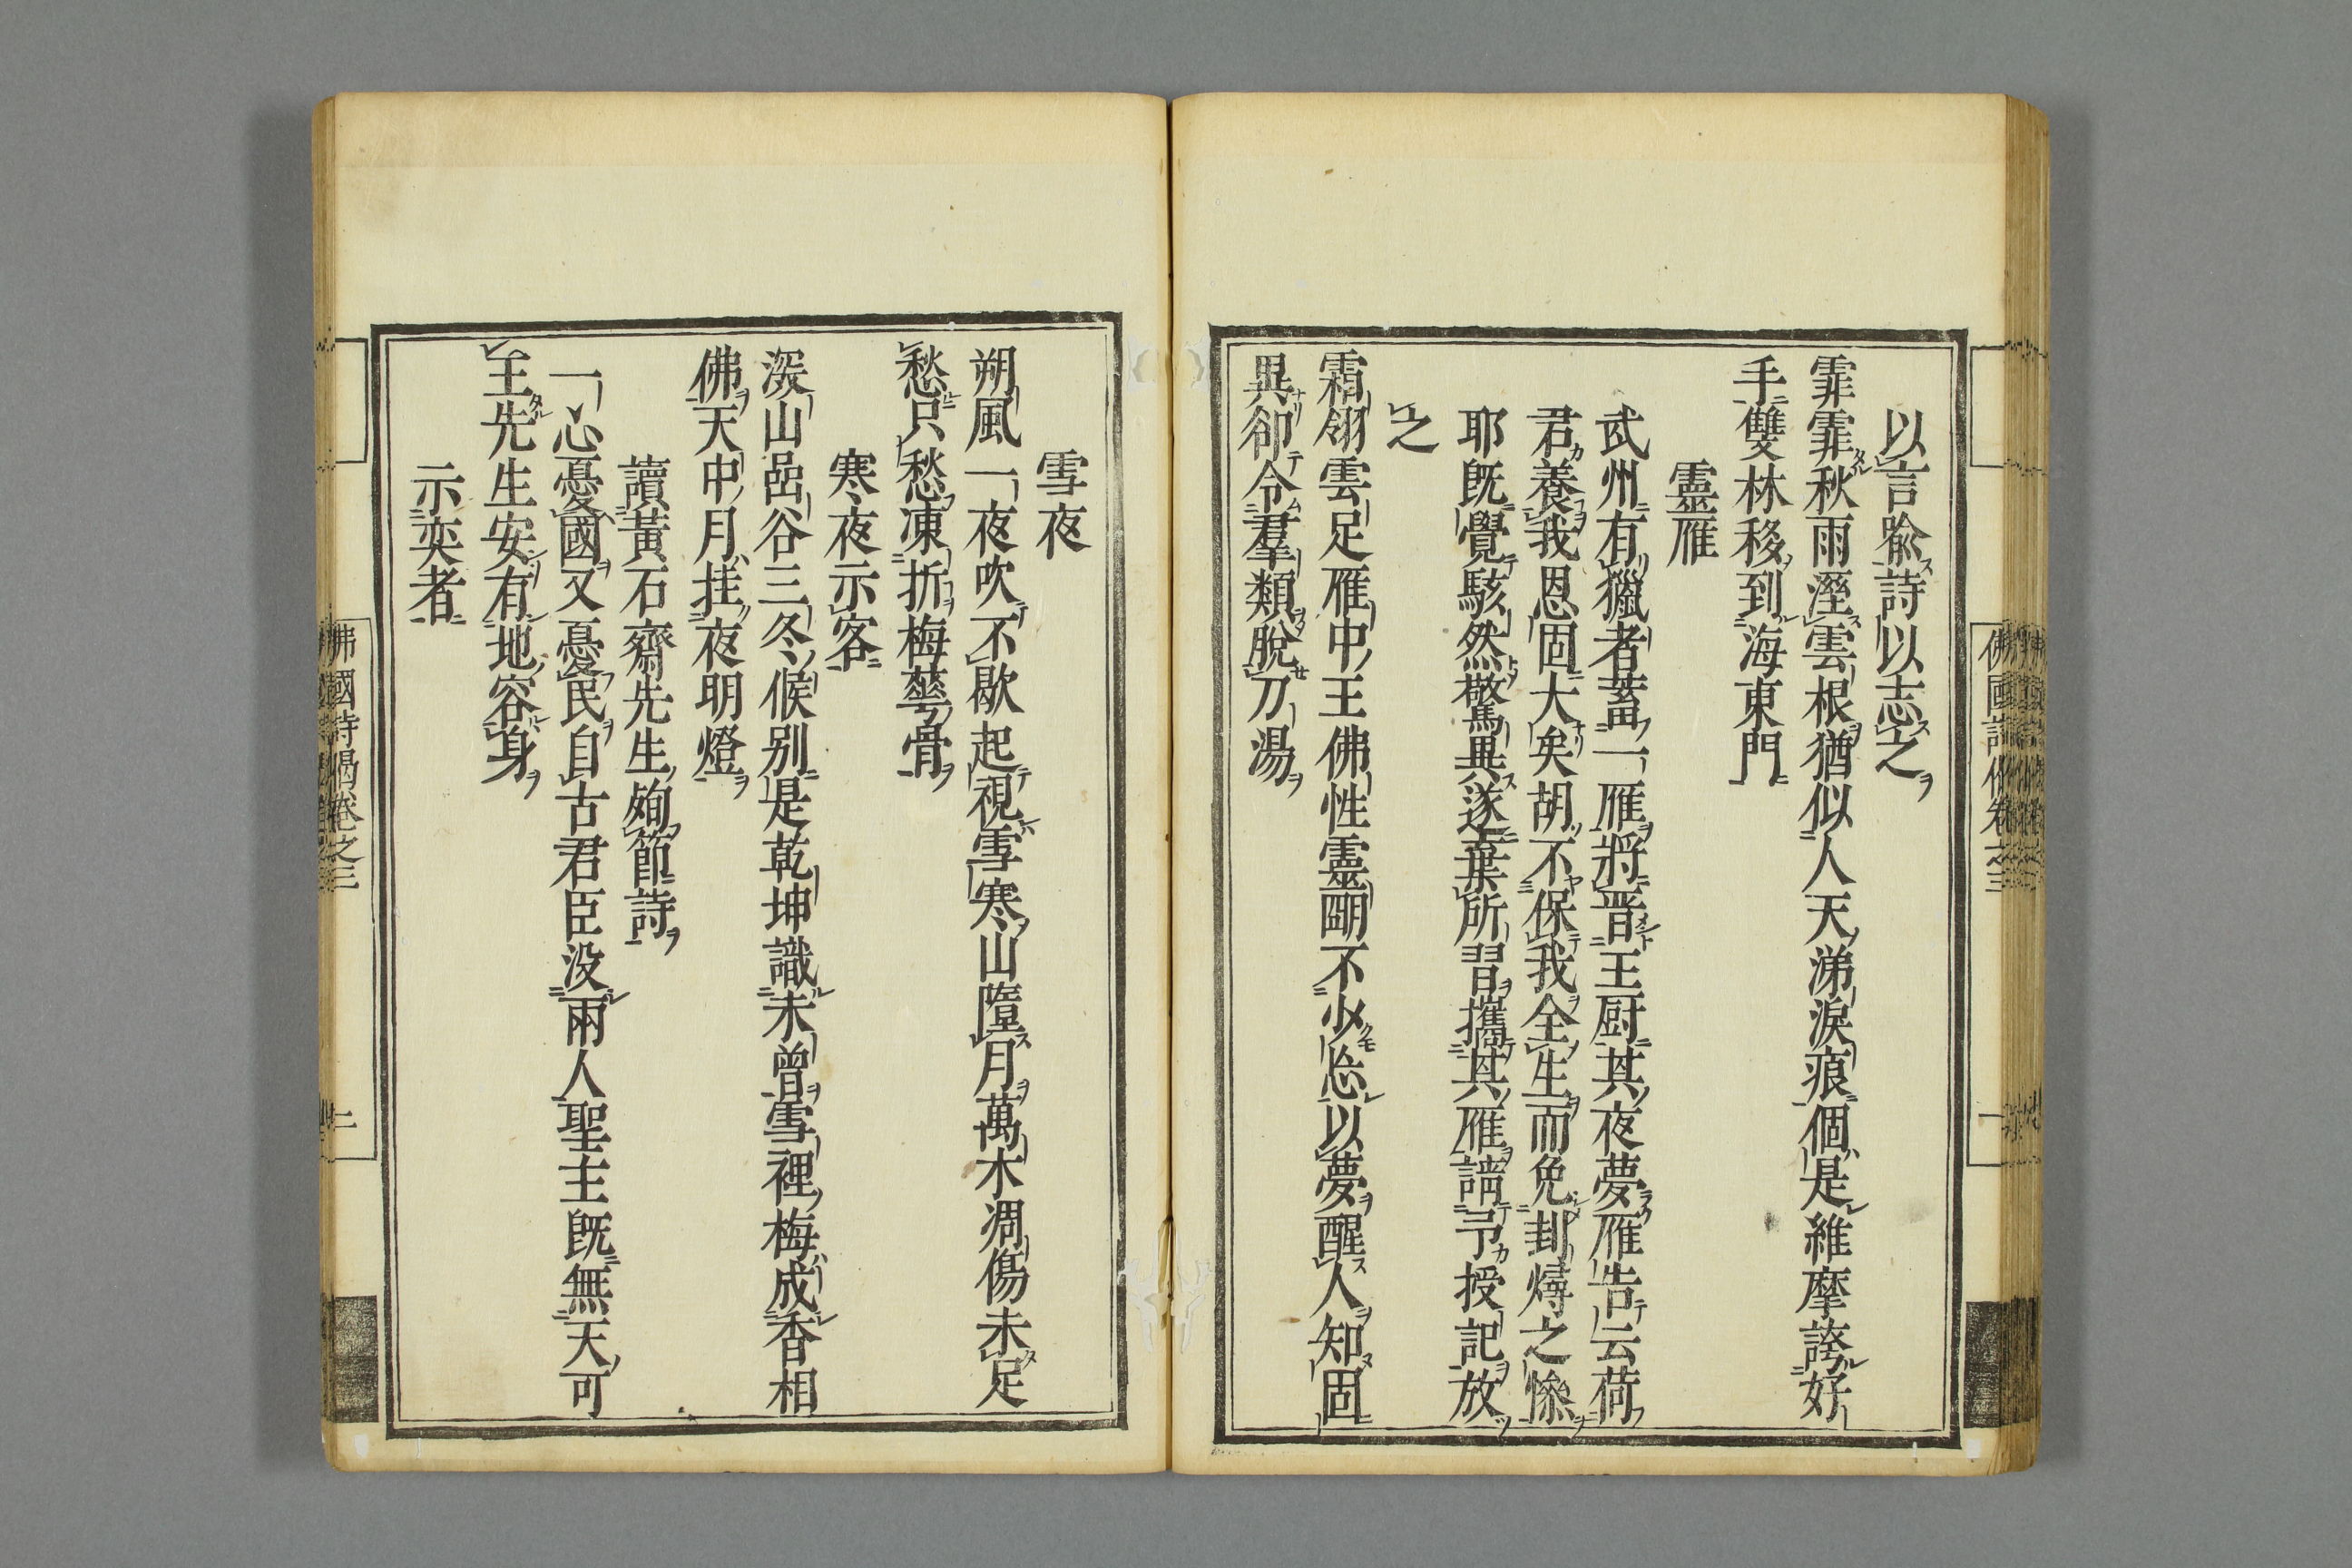 以言貽詩以志之
霏霏秋雨溼雲根猶似人天涕淚痕個是維摩誇好
手雙林移到海東門
靈雁
武州有獵者蓄一雁將晋王厨其夜夢雁告云荷
君養我恩固大矣胡不保我全生而免刲燖之慘
耶既覺駭然驚異遂棄所習攜其雁謁予授記放
之
霜翎雲足雁中王佛性靈明不少忘以夢醒人知固
異卻令羣類脫刀湯
雪夜
朔風一夜吹不歇起視雪寒山墮月萬木凋傷未足
愁只愁凍折梅蕚骨
寒夜示客
深山嵒谷三冬候别是乾坤識未曾雪裡梅成香相
佛天中月挂夜明燈
讀黃石齋先生殉節詩
一心憂國又憂民自古君臣没兩人聖主既無天可
王先生安有地容身
示奕者
佛國詩偈卷之三
二
佛國詩偈卷之三